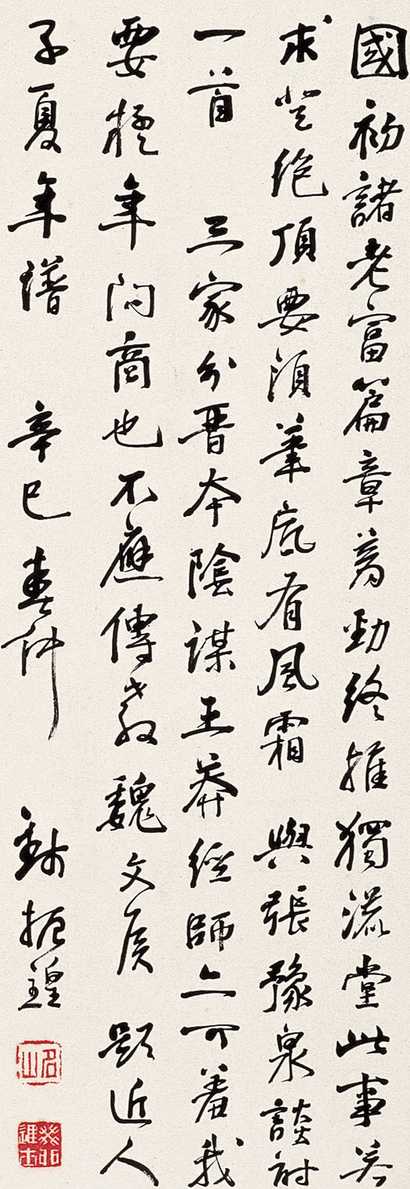 國初諸老富篇章蒼勁終推獨漉堂此事若
求登絶頂要須筆底有風霜 與張豫泉談詩
一首 三家分晉本陰謀王莽經師亦可羞我
要年問商也不應傳教魏文侯 題近人
子夏年譜 辛巳春仲 錢振鍠
名山
癸卯進士